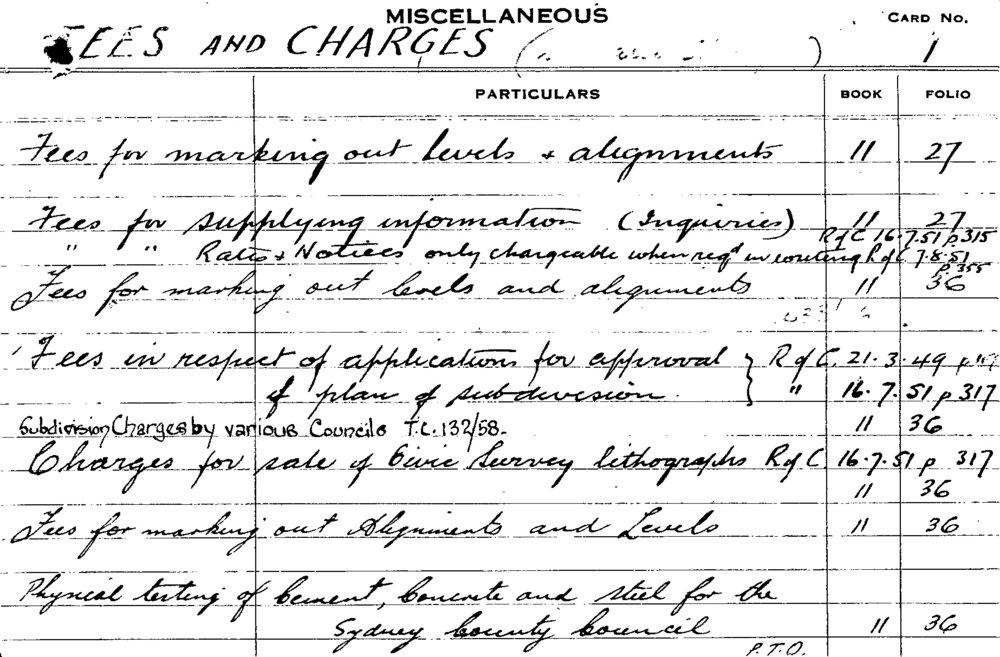 MISCELLANEOUS
CARD NO.
FEES AND CHARGES ( )
1
PARTICULARS BOOK FOLIO
Fees for marking out levels & alignments 11 27
Fees for supplying information (Inquiries) 11 27
R of C 16.7.51 p 315
" " Rates & Notices only chargeable when reqd in writing R of C 7.8.51
p 355
Fees for marking out levels and alignments 11 36
Fees in respect of applications for approval } R of C. 21.3.49
of plan of subdivision. } " 16.7.51 p 317
Subdivision Charges by various Councils T.C. 132/58. 11 36
Charges for sale of Civic Survey lithographs R of C 16.7.51 p 317
11 36
Fees for marking out Alignments and Levels 11 36
Physical testing of Cement, Concrete and steel for the
Sydney County Council 11 36
P.T.O.